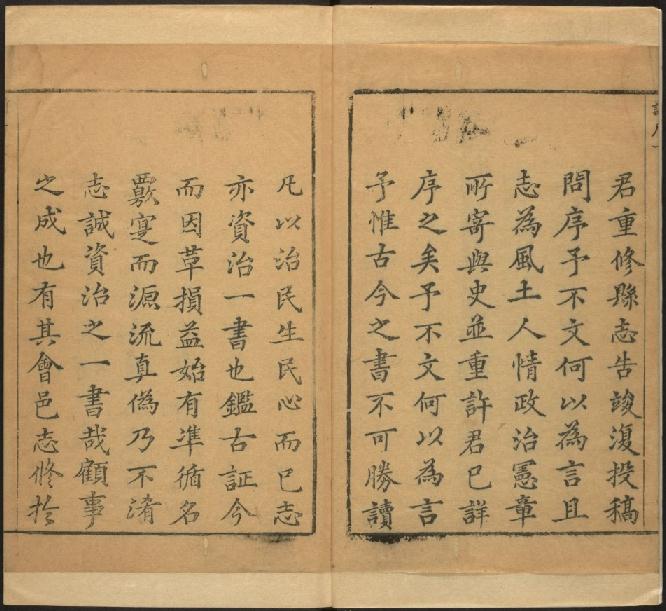 君重修縣志告竣復投稿
問序予不文何以為言且
志為風土人情政治憲章
所寄與史並重許君已詳
序之矣予不文何以為言
予惟古今之書不可勝讀
凡以治民生民心而已志
亦資治一書也鑑古証今
而因革損益始有準循名
覈寔而源流真偽乃不淆
志誠資治之一書哉顧事
之成也有其會邑志修於